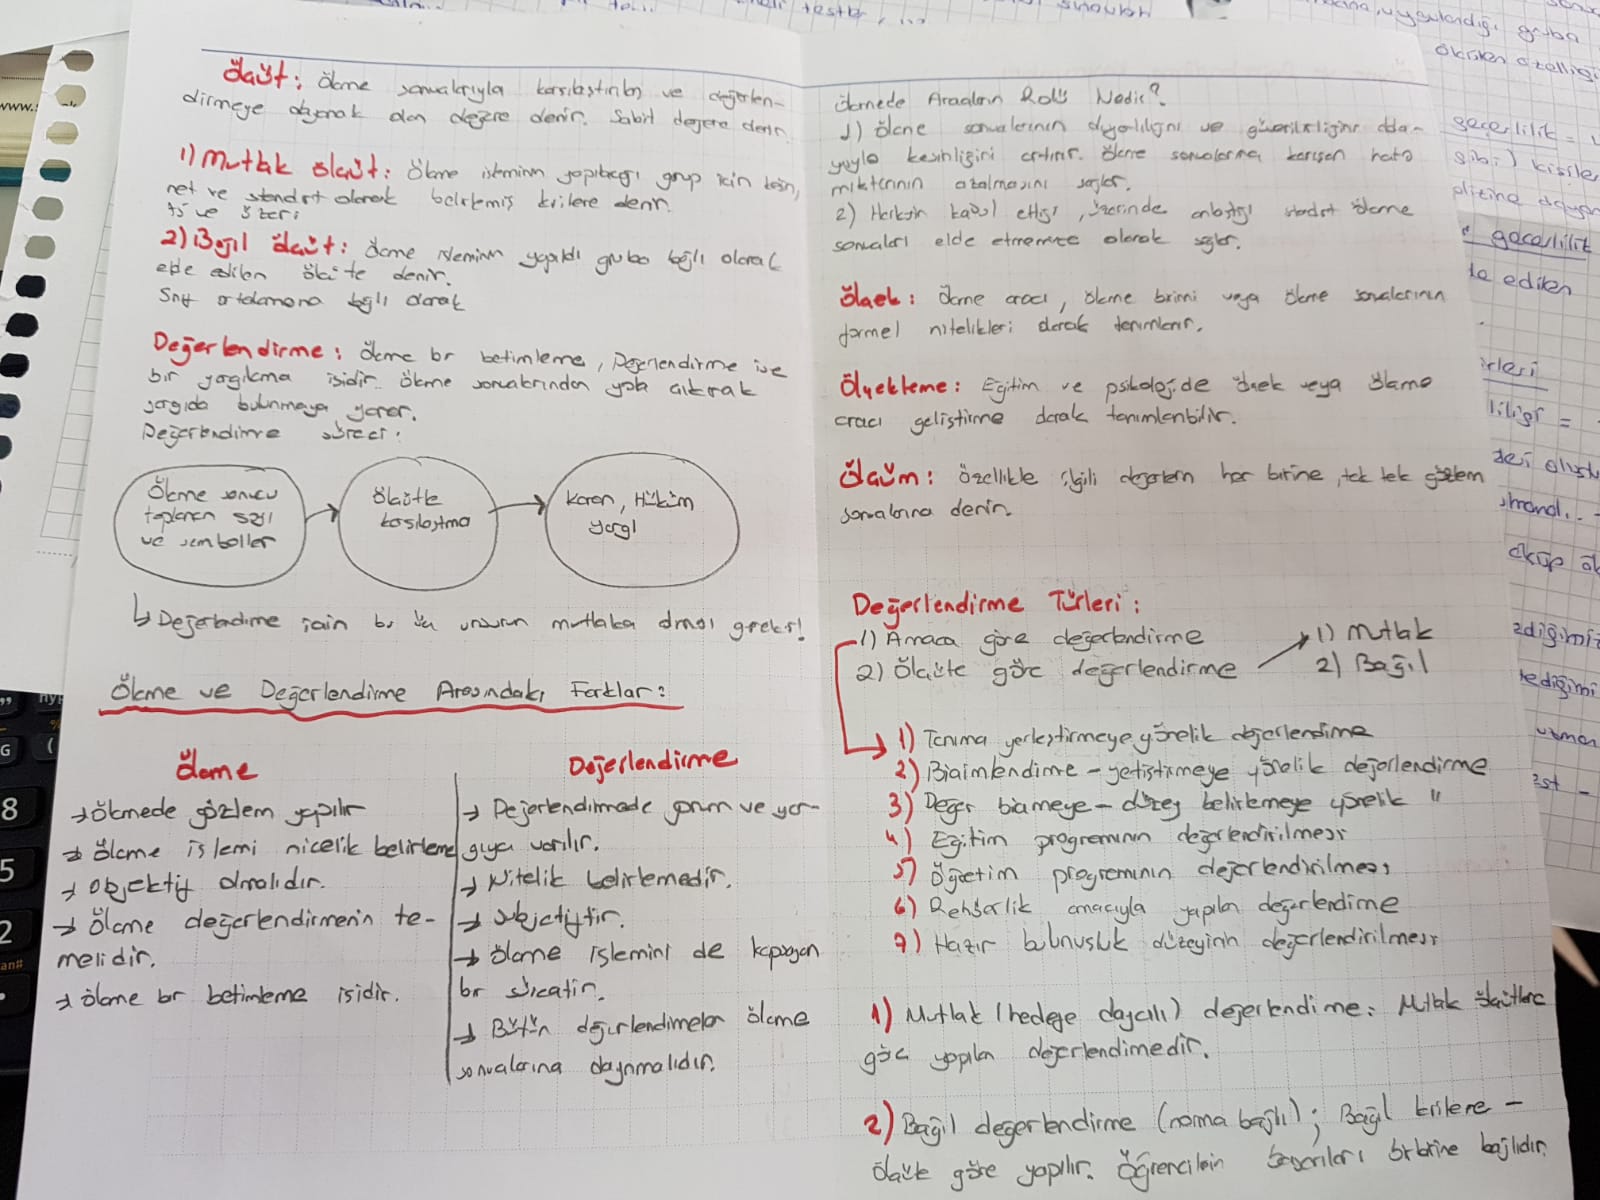 Ölçüt: Ölçme sonuçlarıyla karşılaştırılan ve değerlen-
dirmeye dayanak olan değere denir. Sabit değere denir.
1) Mutlak ölçüt: Ölçme işleminin yapılacağı grup için kesin,
net ve standart olarak belirlenmiş kritere denir.
ve üzeri
2) Bağıl ölçüt: Ölçme işleminin yapıldı gruba bağlı olarak
elde edilen ölçüte denir.
Sınıf ortalamasına bağlı olarak
Değerlendirme: Ölçme bir betimleme, Değerlendirme ise
bir yargılama işidir. Ölçme sonuçlarından yola çıkarak
yargıda bulunmaya yarar.
Değerlendirme süreci:
Ölçme sonucu
toplanan sayı
ve semboller
Ölçütle
karşılaştırma
Karar, Hüküm
yargı
↳ Değerlendirme için bu üç unsurun mutlaka olması gerekir!
Ölçme ve Değerlendirme Arasındaki Farklar:
Ölçme
→ Ölçmede gözlem yapılır
→ Ölçme işlemi nicelik belirleme
→ Objektif olmalıdır.
→ Ölçme değerlendirmenin te-
melidir.
→ Ölçme bir betimleme işidir.
Değerlendirme
→ Değerlendirmede yorum ve yar-
gıya varılır.
→ Nitelik belirlemedir.
→ subjektiftir.
→ Ölçme işlemini de kapsayan
bir süreçtir.
→ Bütün değerlendirmeler ölçme
sonuçlarına dayanmalıdır.
Ölçmede Araçların Rolü Nedir?
1) Ölçme sonuçlarının duyarlılığını ve güvenilirliğini dola-
yısıyla kesinliğini artırır. Ölçme sonuçlarına karışan hata
miktarının azalmasını sağlar.
2) Herkesin kabul ettiği, üzerinde standart ölçme
sonuçları elde etmemize olarak sağlar.
Ölçek: Ölçme aracı, ölçme birimi veya ölçme sonuçlarının
formel nitelikleri olarak tanımlanır.
Ölçekleme: Eğitim ve psikolojide ölçek veya ölçme
aracı geliştirme olarak tanımlanabilir.
Ölçüm: Özellikle ilgili değerlerin her birine, tek tek gözlem
sonuçlarına denir.
Değerlendirme Türleri:
1) Amaca göre değerlendirme
2) Ölçüte göre değerlendirme
1) Mutlak
2) Bağıl
1) Tanıma yerleştirmeye yönelik değerlendirme
2) Biçimlendirme - yetiştirmeye yönelik değerlendirme
3) Değer biçmeye - düzey belirlemeye yönelik "
4) Eğitim programının değerlendirilmesi
5) Öğretim programının değerlendirilmesi
6) Rehberlik amacıyla yapılan değerlendirme
7) Hazır bulunuşluk düzeyinin değerlendirilmesi
1) Mutlak (hedefe dayalı) değerlendirme: Mutlak ölçütlere
göre yapılan değerlendirmedir.
2) Bağıl değerlendirme (norma bağlı); Bağıl kritere -
ölçüte göre yapılır. Öğrencilerin başarıları birbirine bağlıdır.